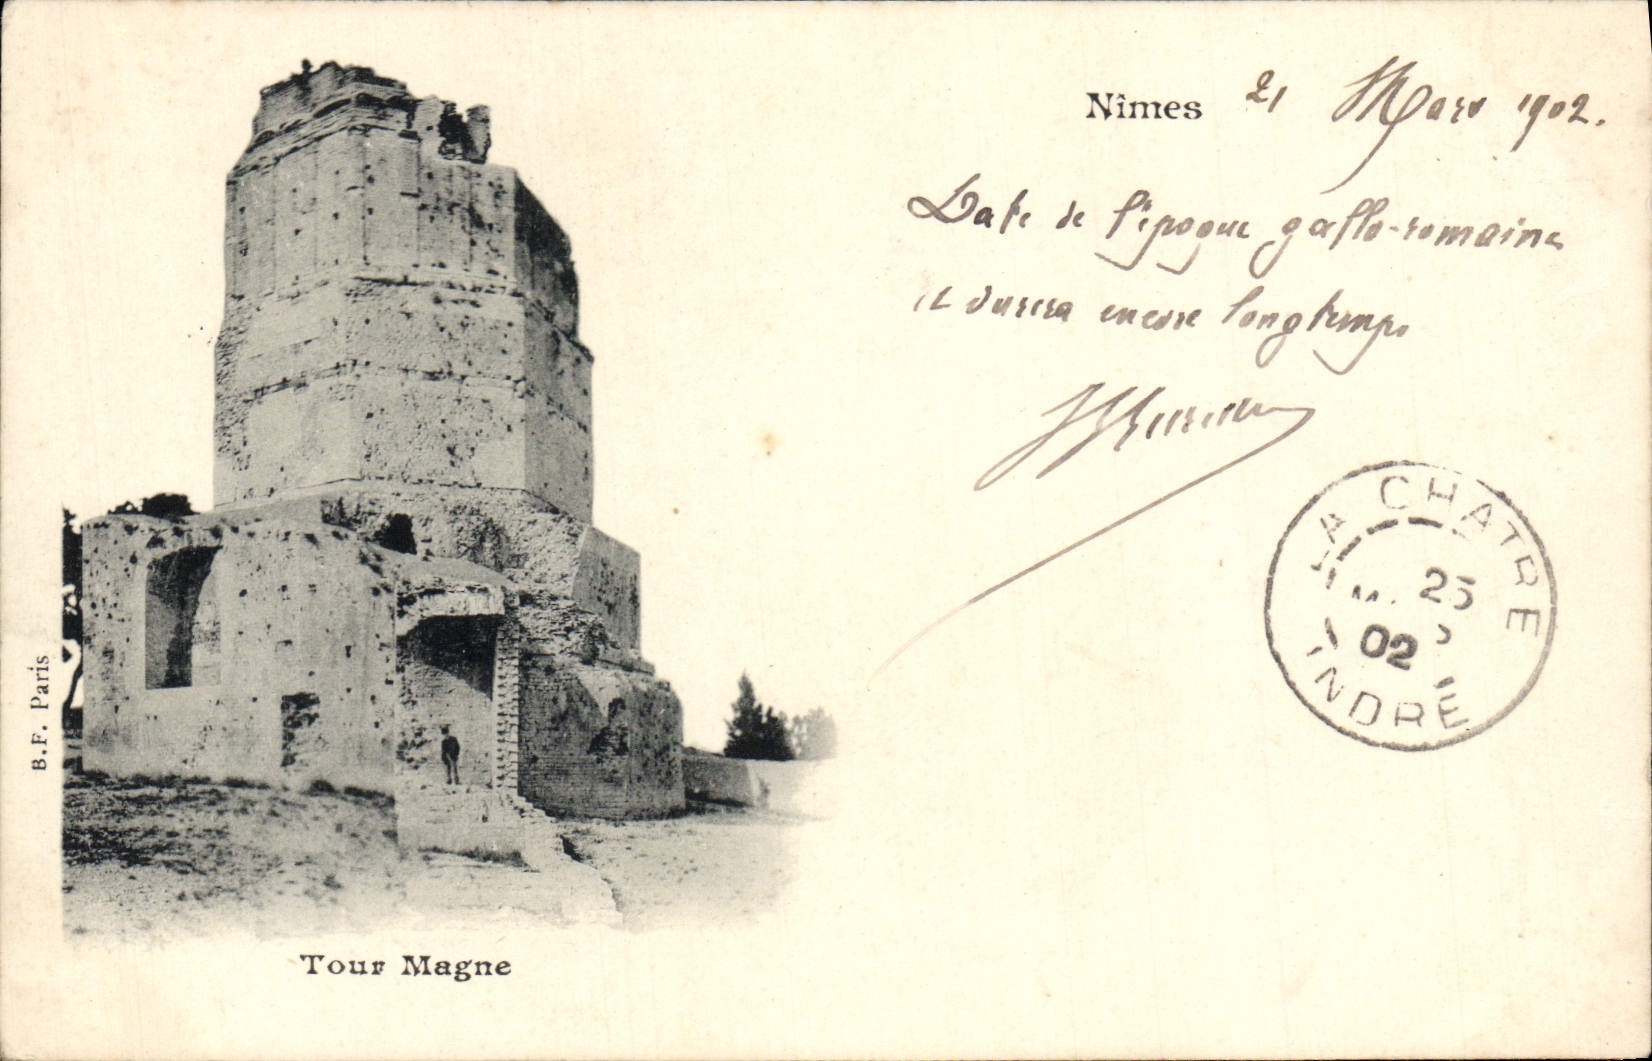 Nîmes 21 Mars 1902.
Date de l'époque gallo-romaine
et durera encore longtemps
LA CHATRE
25
02
INDRE
B.F. Paris
Tour Magne